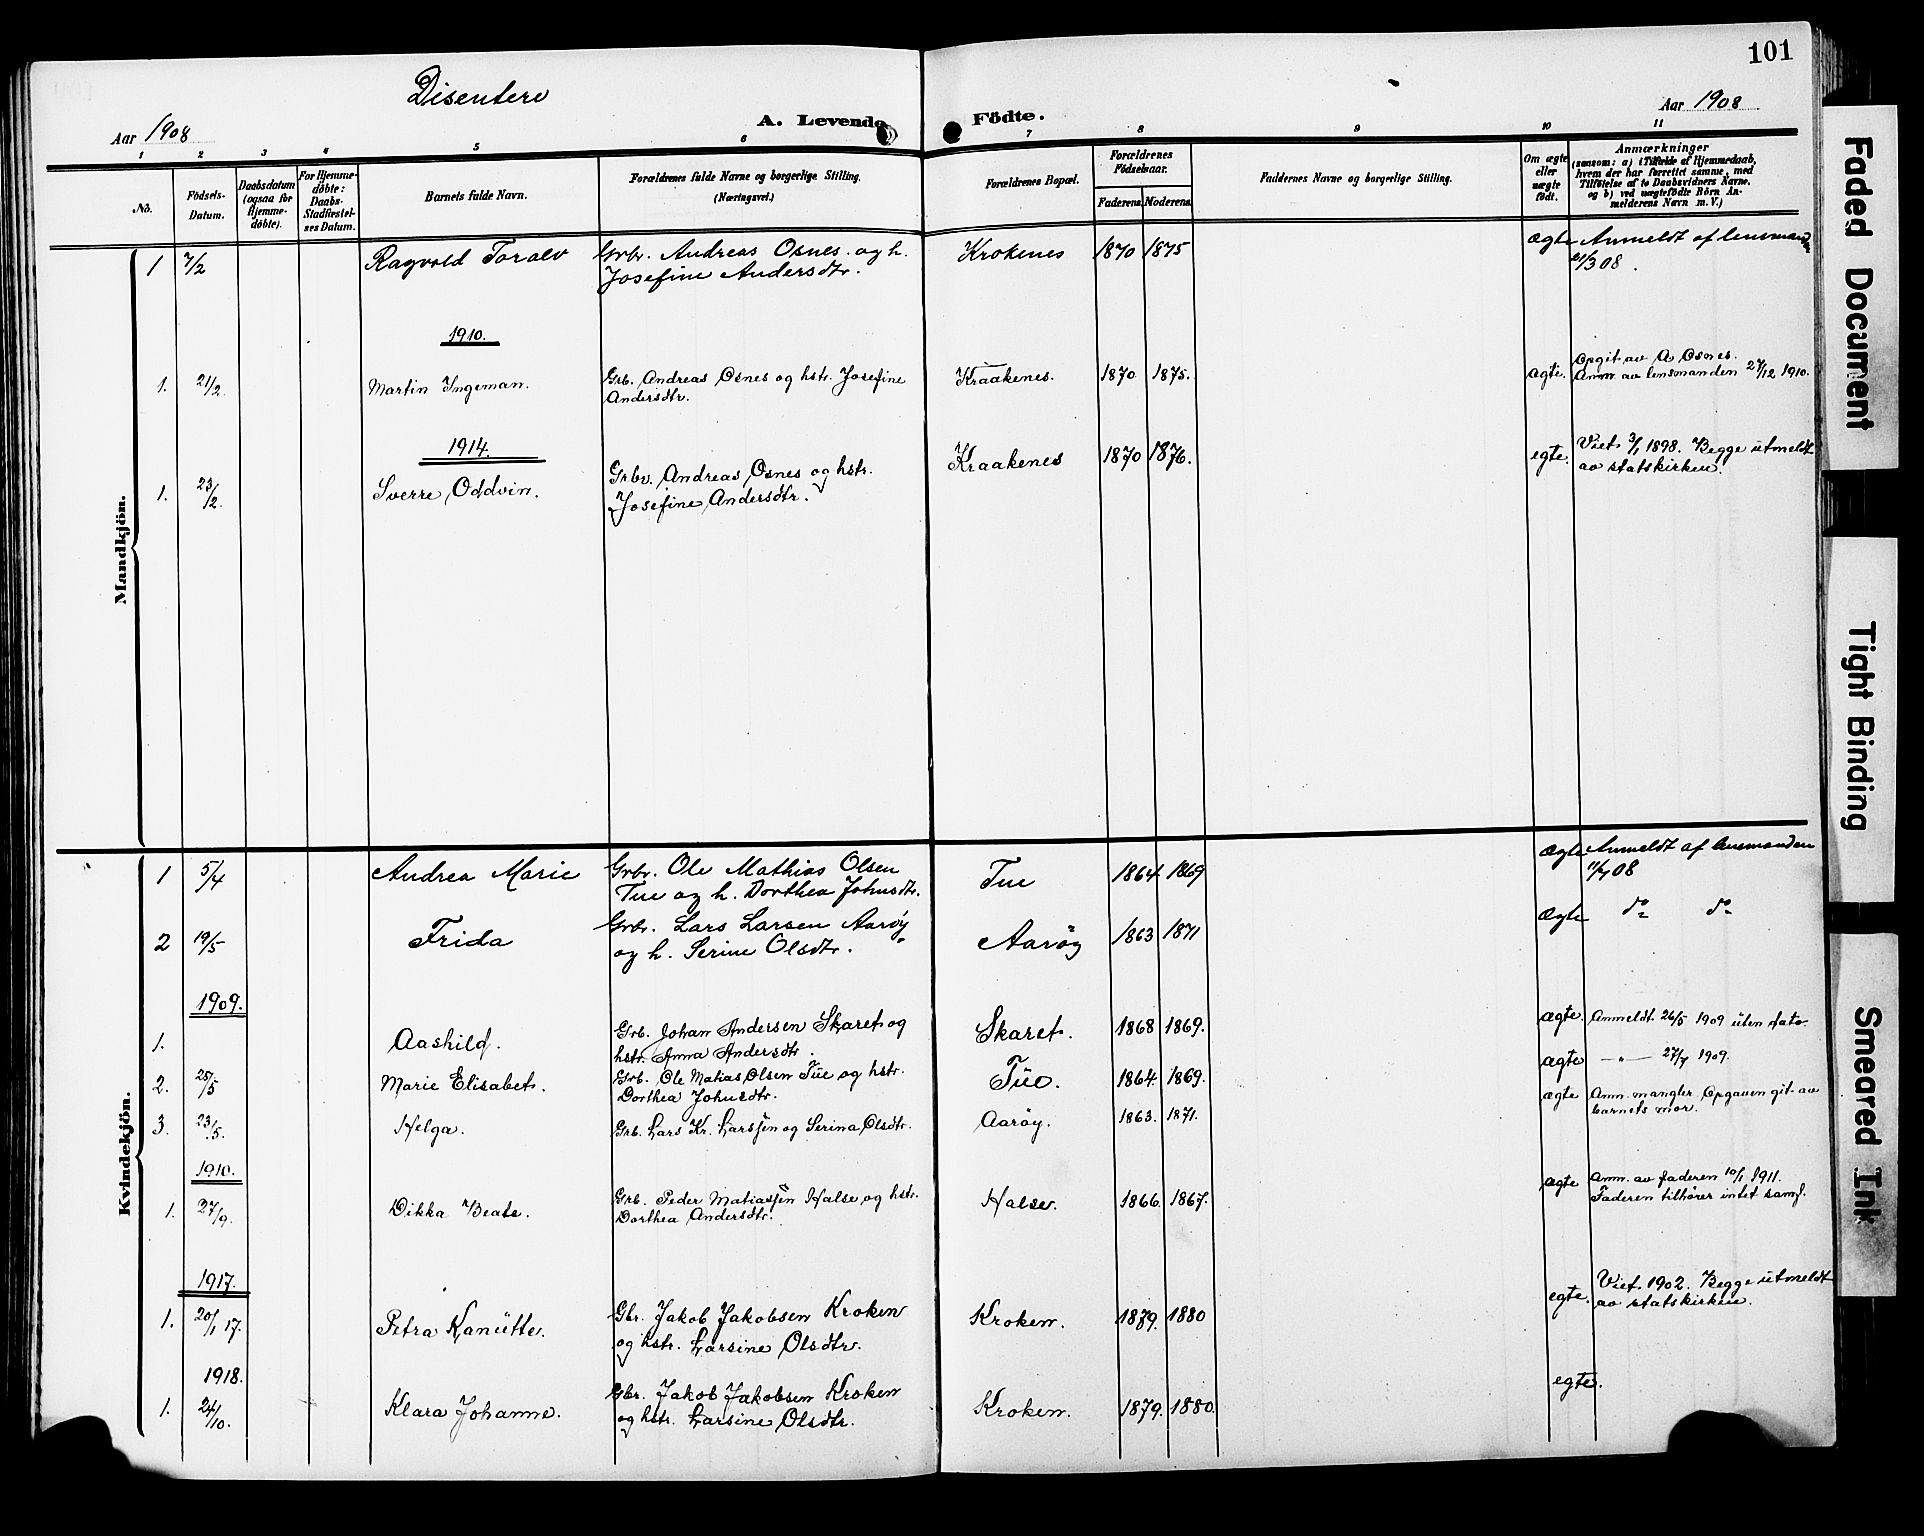 101
Disentere
Aar 1908
A. Levende Födte.
Aar 1908
1 2 3 4 5 6 7 8 9 10 11
No.
Födsels-
Datum.
Daabsdatum
(ogsaa for
Hjemme-
døbte).
For Hjemme-
døbte:
Daabs-
Stadfæstel-
ses Datum.
Barnets fulde Navn.
Forældrenes fulde Navne og borgerlige Stilling.
(Næringsvei.)
Forældrenes Bopæl.
Forældrenes
Födselsaar.
Faderens. Moderens.
Faddernes Navne og borgerlige Stilling.
Om ægte
eller
uægte
født.
Anmærkninger
(saasom: a) i Tilfælde af Hjemmedaab,
hvem der har forrettet samme, med
Tilføielse af to Daabsvidners Navne,
og b) ved uægtefødte Börn An-
melderens Navn m. V.)
Mandkjön.
1 7/2 Ragvald Toralv Grbr. Andreas Osnes og h. Krokenes 1870 1875 ægte Anmeldt af lensmanden
Josefine Andersdtr. 21/3 08.
1910.
1. 21/2. Martin Ingeman. Grb. Andreas Osnes og hstr. Josefine Kraakenes. 1870 1875. ægte. Opgit av A Osnes.
Andersdtr. Anm. av lensmanden 27/12 1910.
1914.
1. 23/2. Sverre Oddvin. Grbr. Andreas Osnes og hstr. Kraakenes 1870 1876. egte. Viet 3/1 1898. Begge utmeldt
Josefine Andersdtr. av statskirken.
Kvindekjön.
1 5/4 Andrea Marie Grbr. Ole Mathias Olsen Tue 1864 1869 ægte Anmeldt af lensmanden
Tue og h. Dorthea Johnsdtr. 11/7 08
2 19/5 Frida Grbr. Lars Larsen Aarøy Aarøy 1863 1871 ægte do do
og h. Serine Olsdtr.
1909.
1. Aashild. Grb. Johan Andersen Skaret og Skaret. 1868 1869. ægte. Anmeldt 26/5 1909 uten dato.
hstr. Anna Andersdtr.
2. 25/5 Marie Elisabet. Grb. Ole Matias Olsen Tüe og hstr. Tüe. 1864. 1869. ægte —"— 27/7 1909.
Dorthea Johnsdtr.
3. 23/5. Helga. Grb. Lars Kr. Larssen og Serina Olsdtr. Aarøy. 1863. 1871. ægte Anm. mangler. Opgaven git av
barnets mor.
1910.
1. 27/9. Dikka Beate. Grb. Peder Matiassen Halse og hstr. Halse. 1866. 1867. ægte Anm. av faderen 10/1 1911.
Dorthea Andersdtr. Faderen tilhører intet samf.
1917.
1. 20/1 17. Petra Kanütte. Gbr. Jakob Jakobsen Kroken Kroken. 1879. 1880 egte. Viet 1902. Begge utmeldt
og hstr. Larsine Olsdtr. av statskirken.
1918.
1. 24/10. Klara Johanne. Gbr. Jakob Jakobsen Kroken Kroken. 1879. 1880. egte.
og hstr. Larsine Olsdtr.
Faded Document
Tight Binding
Smeared Ink